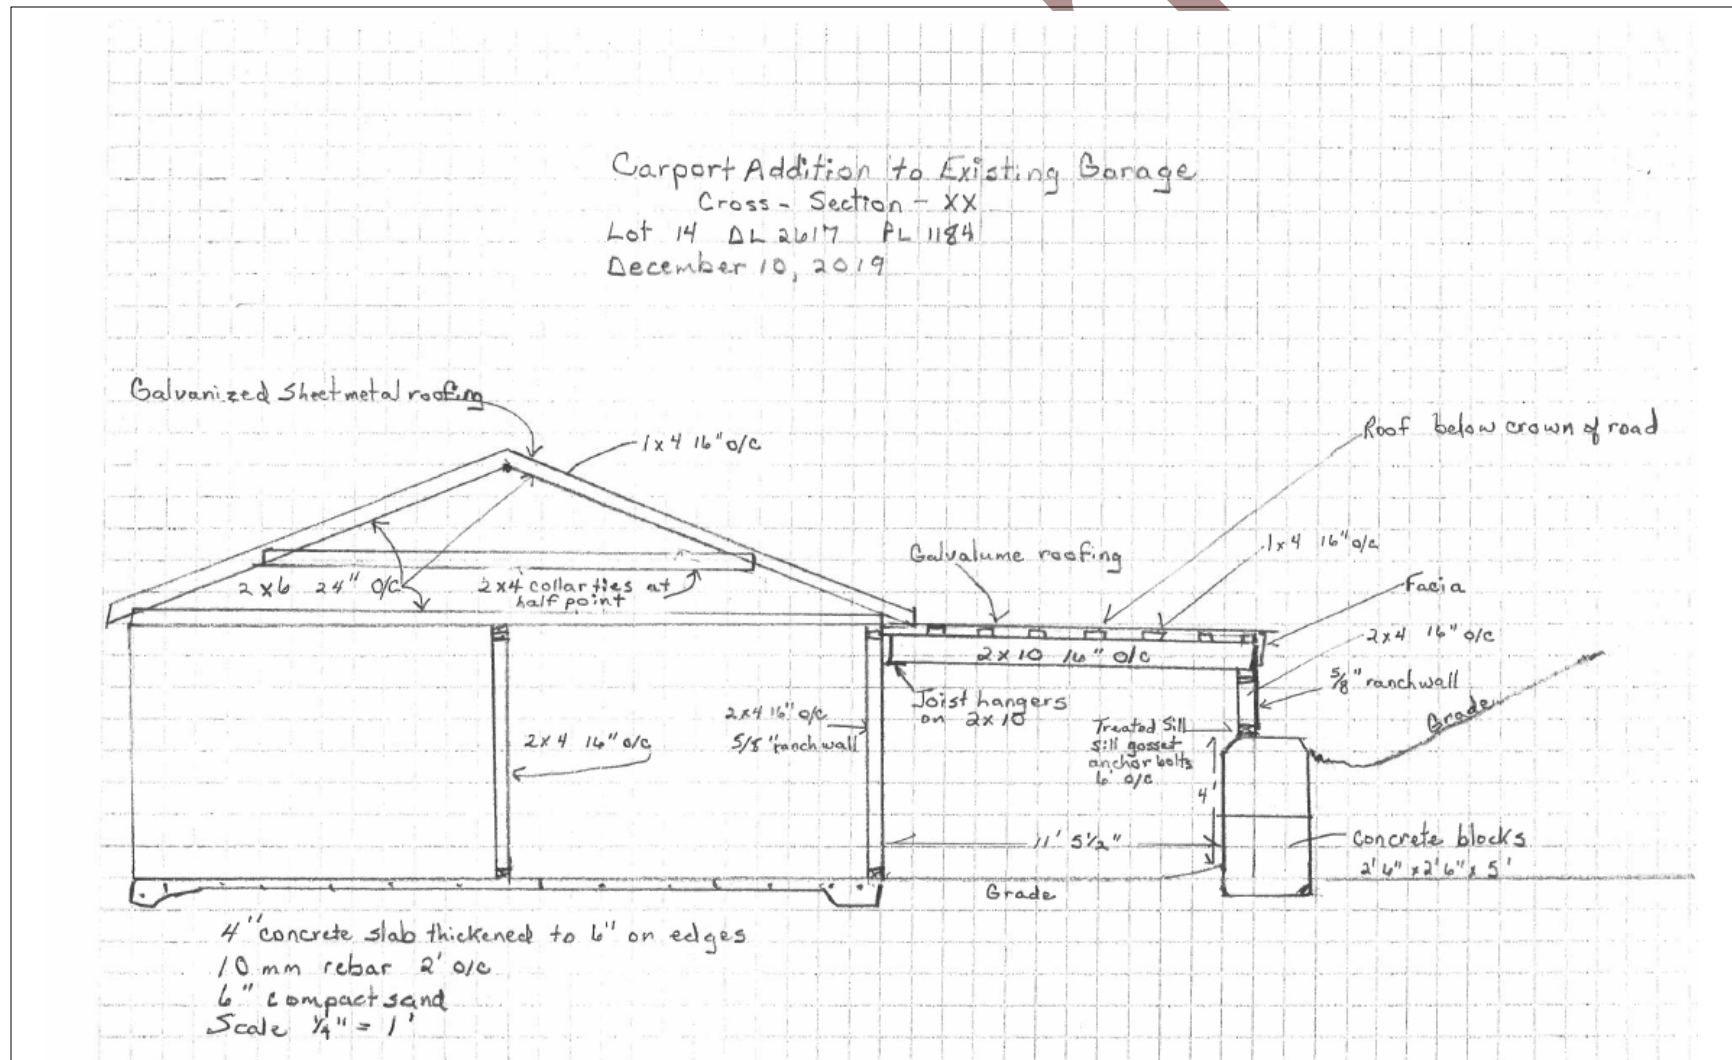 Carport Addition to Existing Garage
Cross - Section - XX
Lot 14 DL 2617 PL 1184
December 10, 2019
Galvanized Sheetmetal roofing
1x4 16" o/c
Roof below crown of road
Galvalume roofing
1x4 16" o/c
Facia
2x6 24" o/c
2x4 collar ties at
half point
2x4 16" o/c
2x10 16" o/c
5/8" ranchwall
Joist hangers
on 2x10
Grade
2x4 16" o/c
5/8" ranchwall
Treated Sill
sill gosset
anchor bolts
6' o/c
2x4 16" o/c
4'
11' 5 1/2"
Concrete blocks
2'6" x 2'6" x 5'
Grade
4" concrete slab thickened to 6" on edges
10 mm rebar 2' o/c
6" compact sand
Scale 1/4" = 1'